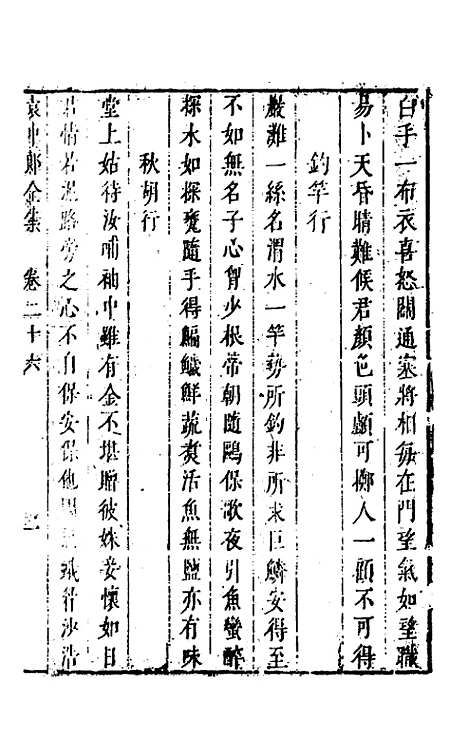 白手一布衣喜怒關通塞將相每在門望氣如望職
易卜天昏晴難候君顏色頭顱可擲人一顧不可得
釣竿行
嚴灘一絲名渭水一竿勢所釣非所求巨鱗安得至
不如無名子心曾少根帶朝隨鷗保歌夜引魚蠻醉
探水如探甕隨手得鯿鱖鮮蔬煑活魚無鹽亦有味
秋胡行
堂上姑待汝哺袖中雖有金不堪贈彼姝妾懷如日
君情若泥路旁之心不自保安保他沙浩
袁中郎全集 卷二十六